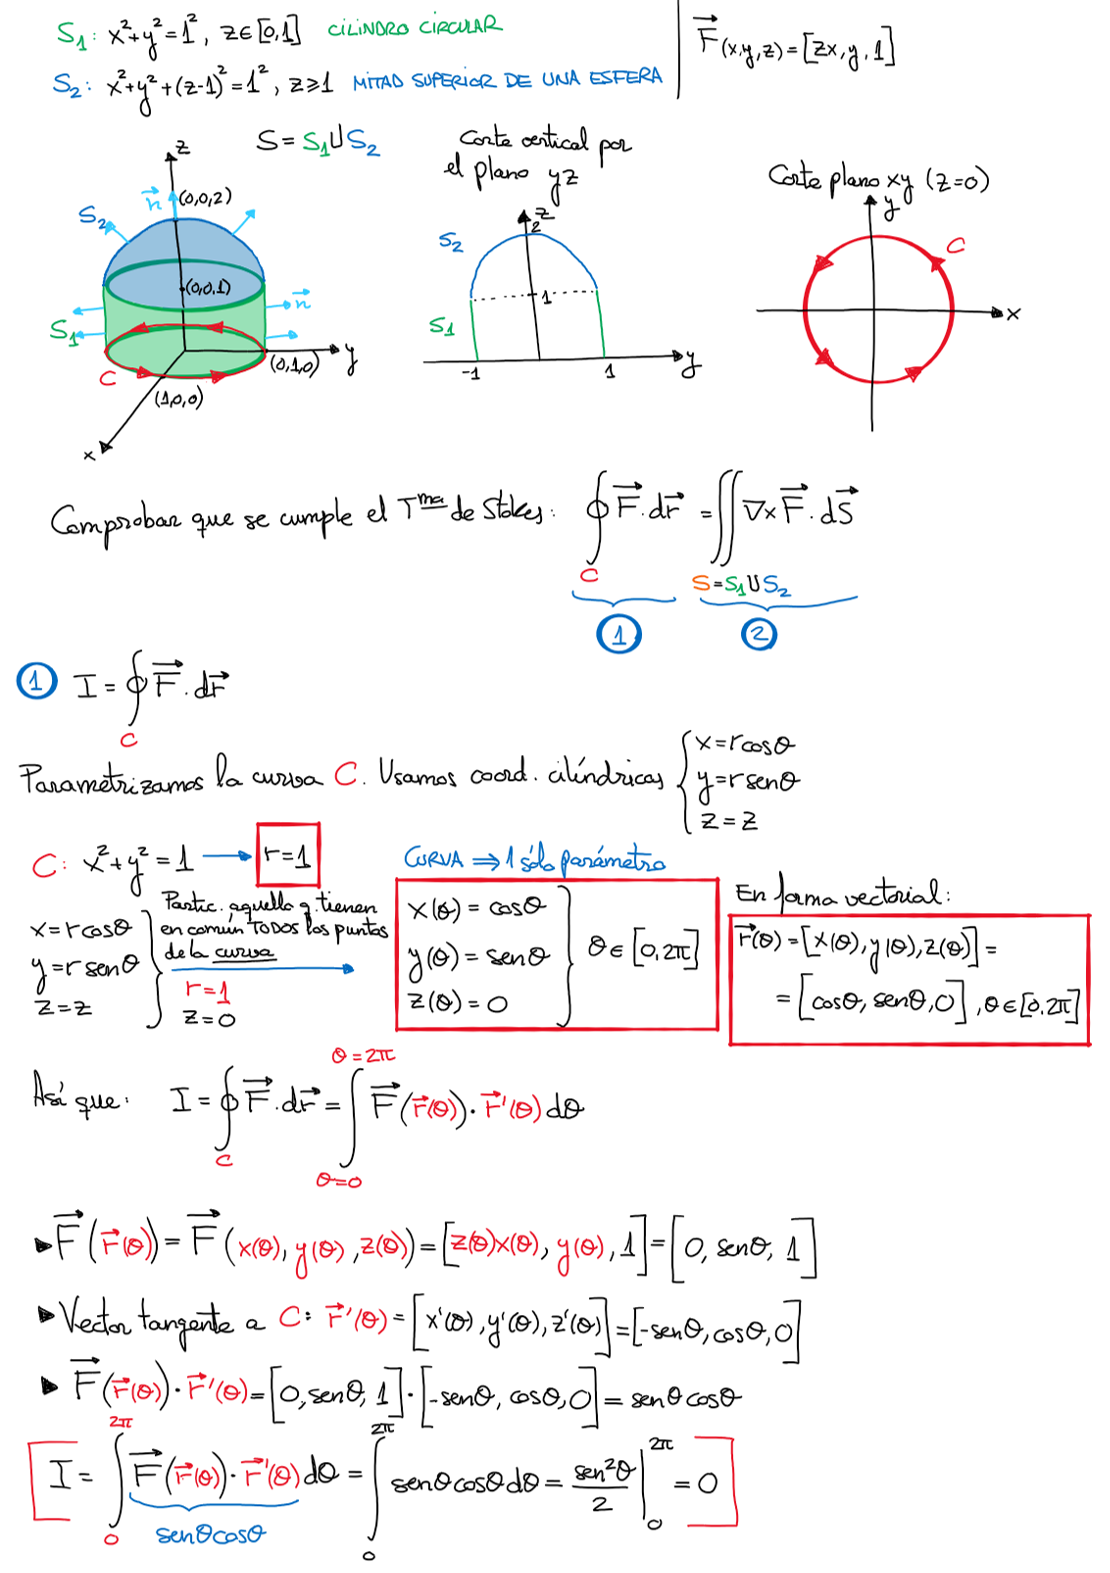 S₁: x²+y²=1², z∈[0,1] CILINDRO CIRCULAR
F⃗(x,y,z)=[zx,y,1]
S₂: x²+y²+(z-1)²=1², z≥1 MITAD SUPERIOR DE UNA ESFERA
S=S₁∪S₂
Corte vertical por
el plano yz
Corte plano xy (z=0)
z
n⃗
(0,0,2)
S₂
(0,0,1)
n⃗
S₁
C
(0,1,0)
y
(1,0,0)
x
z
2
S₂
1
S₁
-1
1
y
y
C
x
Comprobar que se cumple el Tᵐᵃ de Stokes: ∮ F⃗.dr⃗ = ∬ ∇×F⃗.dS⃗
C
S=S₁∪S₂
1
2
1 I=∮ F⃗.dr⃗
C
Parametrizamos la curva C. Usamos coord. cilíndricas { x=rcosθ
y=rsenθ
z=z
C: x²+y²=1 → r=1
CURVA ⇒ 1 sólo parámetro
x=rcosθ
y=rsenθ
z=z
Partic. aquello q. tienen
en común TODOS los puntos
de la curva
r=1
z=0
x(θ)=cosθ
y(θ)=senθ
z(θ)=0
θ∈[0,2π]
En forma vectorial:
r⃗(θ)=[x(θ),y(θ),z(θ)]=
=[cosθ,senθ,0], θ∈[0,2π]
θ=2π
Así que: I=∮ F⃗.dr⃗=∫ F⃗(r⃗(θ)).r⃗'(θ)dθ
C
θ=0
▸F⃗(r⃗(θ))=F⃗(x(θ),y(θ),z(θ))=[z(θ)x(θ),y(θ),1]=[0,senθ,1]
▸Vector tangente a C: r⃗'(θ)=[x'(θ),y'(θ),z'(θ)]=[-senθ,cosθ,0]
▸F⃗(r⃗(θ)).r⃗'(θ)=[0,senθ,1].[-senθ,cosθ,0]=senθcosθ
2π 2π 2π
I=∫ F⃗(r⃗(θ)).r⃗'(θ)dθ=∫ senθcosθdθ=sen²θ/2 | =0
0 senθcosθ 0 0